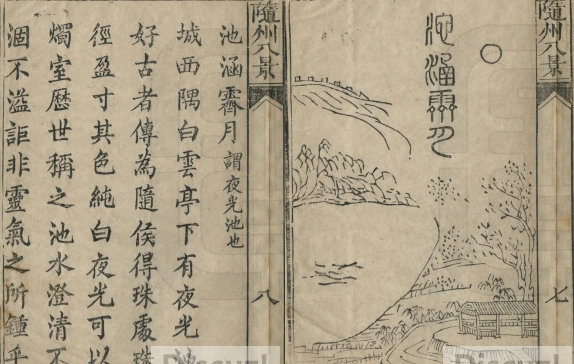 隨州八景
池涵霽月
七
隨州八景
池涵霽月 謂夜光池也
城西隅白雲亭下有夜光池
好古者傳為隨侯得珠處珠
徑盈寸其色純白夜光可以
燭室歷世稱之池水澄清不
涸不溢詎非靈氣之所鍾乎
八